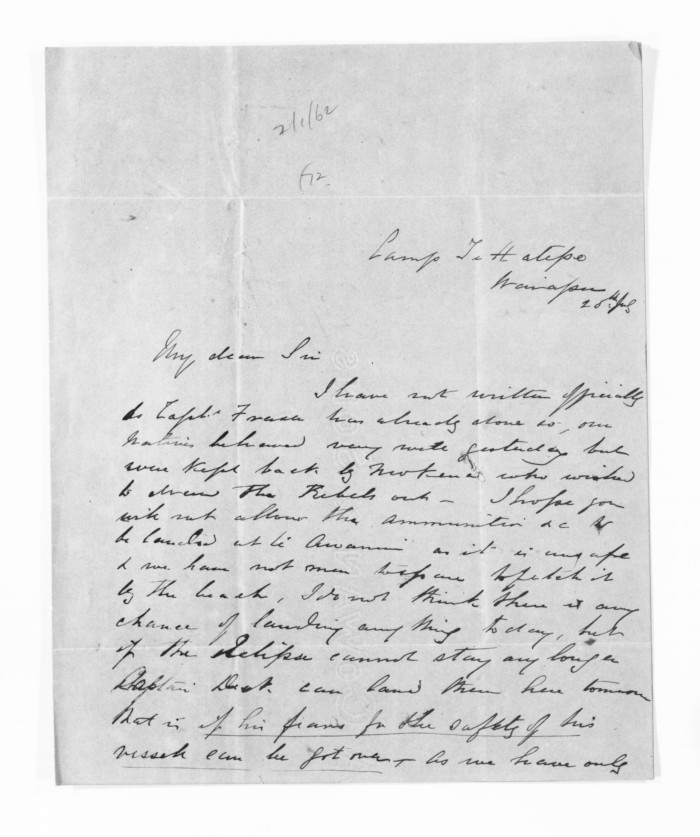 2/1/62
Camp Te Hatepe
Waiapu
My dear Sir
I have not written officially
as Capt. Fraser has already done so, our
Natives behaved very well yesterday but
were kept back by Mokena who wished
to draw the Rebels out — I hope you
will not allow the ammunition &c to
be landed at te Awanui as it is unsafe
& we have not men to spare to fetch it
by the beach, I do not think there is any
chance of landing any thing to day, but
if the Eclipse cannot stay any longer
Captain can land them here tomorrow
that is if his fears for the safety of his
vessel can be got over — as we have only